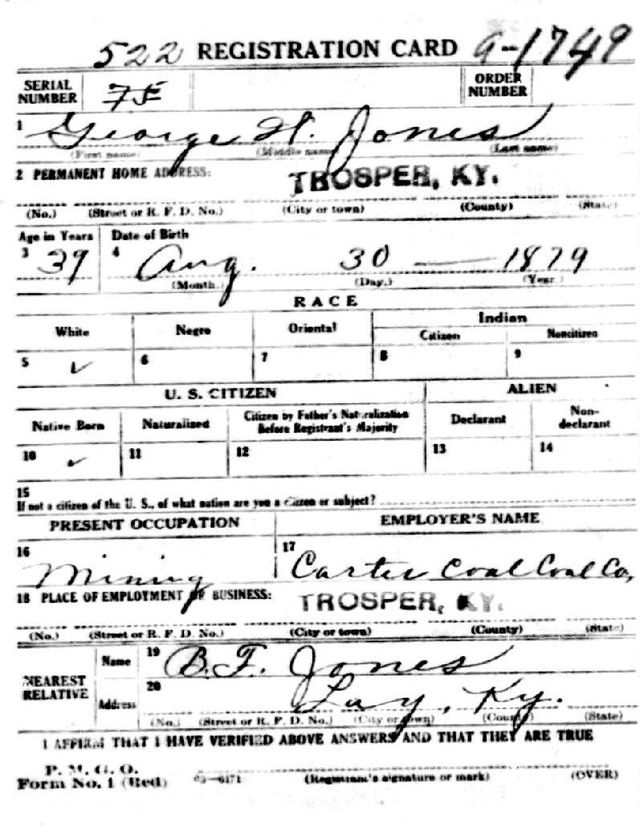 522 REGISTRATION CARD a-1749
SERIAL NUMBER 75 ORDER NUMBER
1 George H. Jones
(First name) (Middle name) (Last name)
2 PERMANENT HOME ADDRESS: TROSPER, KY.
(No.) (Street or R. F. D. No.) (City or town) (County) (State)
Age in Years Date of Birth
3 39 4 Aug. 30 — 1879
(Month.) (Day.) (Year.)
RACE
White Negro Oriental Indian
Citizen Noncitizen
5 ✓ 6 7 8 9
U. S. CITIZEN ALIEN
Native Born Naturalized Citizen by Father's Naturalization Before Registrant's Majority Declarant Non-declarant
10 ✓ 11 12 13 14
15
If not a citizen of the U. S., of what nation are you a citizen or subject?
PRESENT OCCUPATION EMPLOYER'S NAME
16 Mining 17 Carter Coal Coal Co,
18 PLACE OF EMPLOYMENT OR BUSINESS: TROSPER, KY.
(No.) (Street or R. F. D. No.) (City or town) (County) (State)
NEAREST RELATIVE Name 19 B.F. Jones
Address 20 Lay, Ky.
(No.) (Street or R. F. D. No.) (City or town) (County) (State)
I AFFIRM THAT I HAVE VERIFIED ABOVE ANSWERS AND THAT THEY ARE TRUE
P. M. G. O.
Form No. 1 (Red) (Registrant's signature or mark) (OVER)